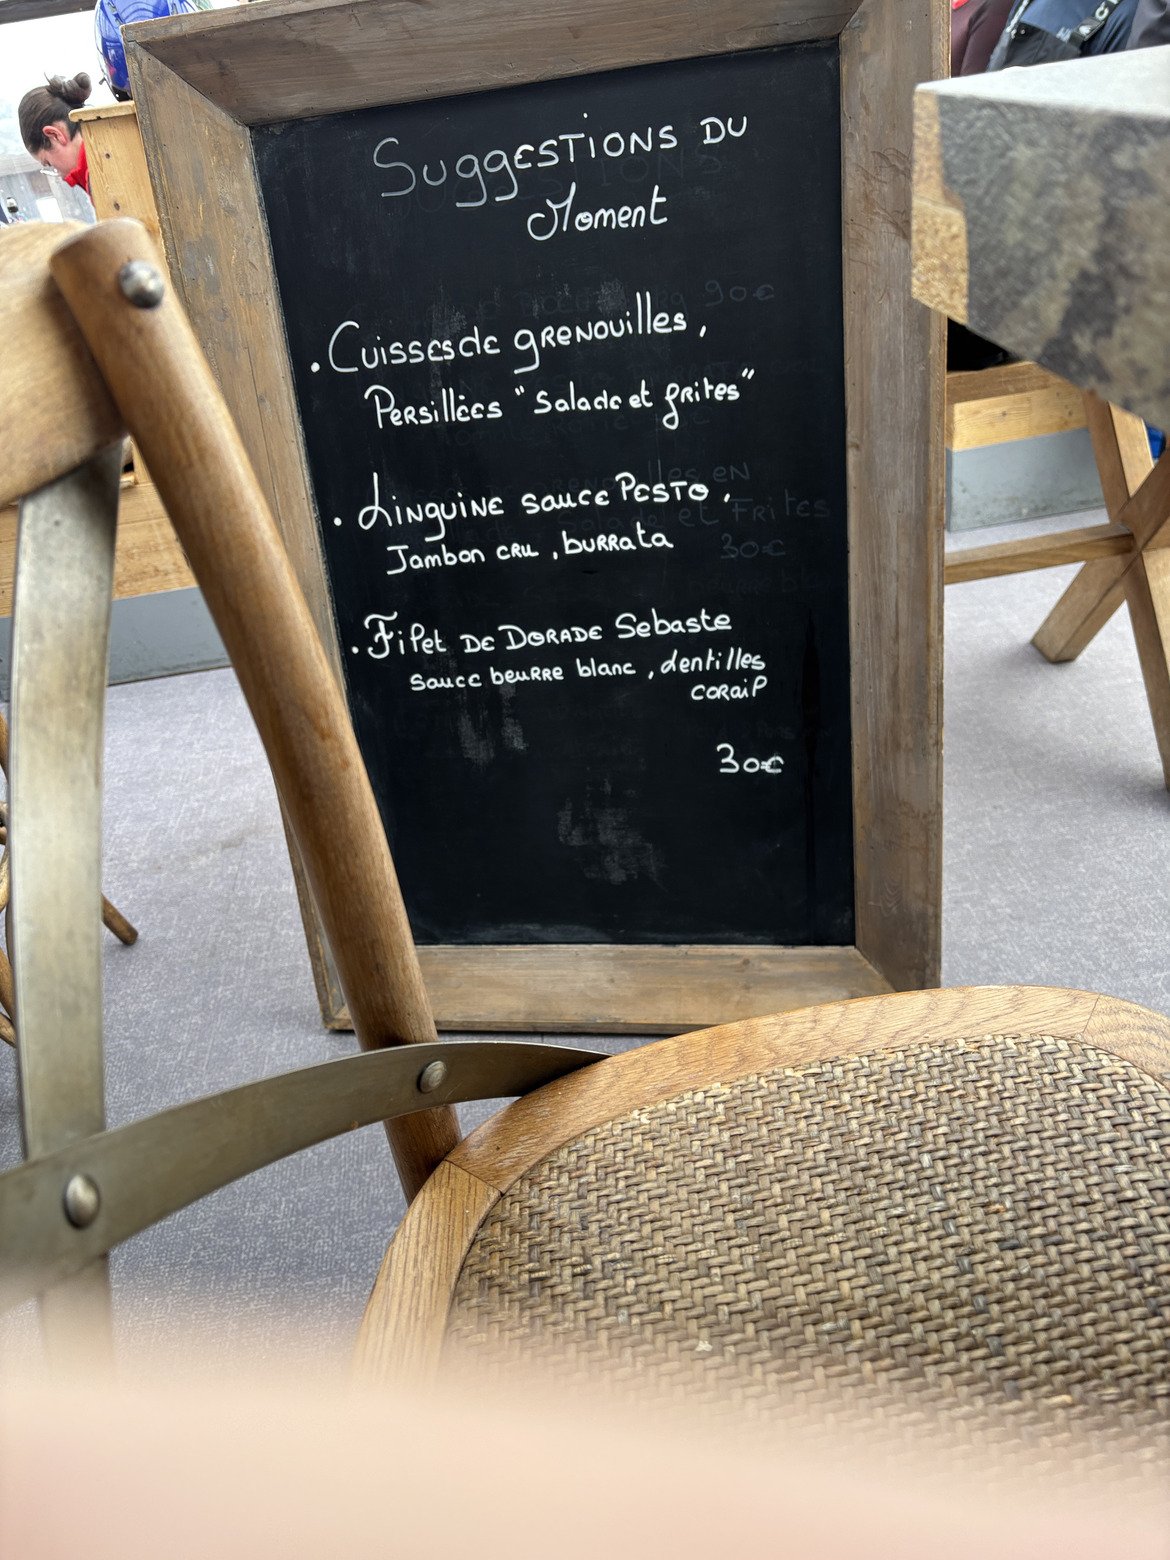 Suggestions du
Moment
• Cuisses de grenouilles,
Persillées "Salade et frites"
• Linguine sauce Pesto,
Jambon cru, burrata
• Filet de Dorade Sebaste
sauce beurre blanc, lentilles
corail
30€
90€
lles en
et Frites
30€